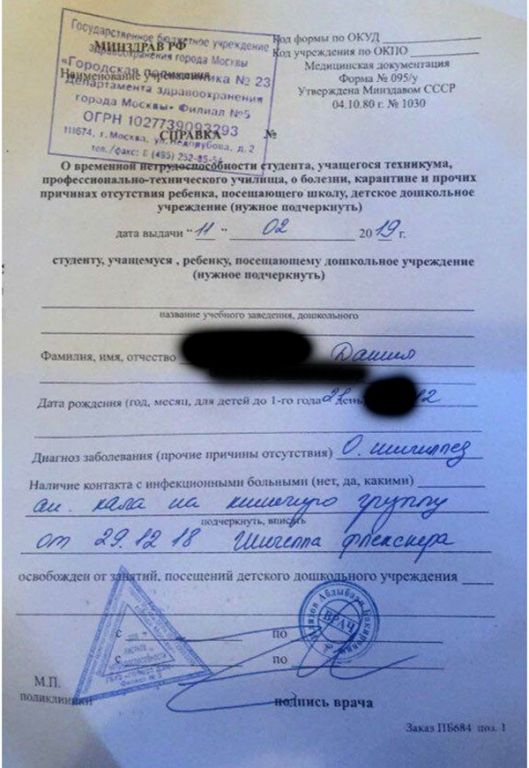 Государственное бюджетное учреждение
здравоохранения города Москвы
«Городская поликлиника № 23
Департамента здравоохранения
города Москвы» Филиал №5
ОГРН 1027739093293
111674, г. Москва, ул. Недорубова, д. 2
тел./факс: 8 (495)
МИНЗДРАВ РФ
Наименование учреждения
Код формы по ОКУД
Код учреждения по ОКПО
Медицинская документация
Форма № 095/у
Утверждена Минздавом СССР
04.10.80 г. № 1030
СПРАВКА №
О временной нетрудоспособности студента, учащегося техникума,
профессионально-технического училища, о болезни, карантине и прочих
причинах отсутствия ребенка, посещающего школу, детское дошкольное
учреждение (нужное подчеркнуть)
дата выдачи “ 11 ” 02 2019 г.
студенту, учащемуся , ребенку, посещающему дошкольное учреждение
(нужное подчеркнуть)
название учебного заведения, дошкольного
Фамилия, имя, отчество Данил
Дата рождения (год, месяц, для детей до 1-го года - день
Диагноз заболевания (прочие причины отсутствия) О. шигеллез
Наличие контакта с инфекционными больными (нет, да, какими)
ан. кала на кишечную группу
подчеркнуть, вписать
от 29.12.18 Шигелла Флекснера
освобожден от занятий, посещений детского дошкольного учреждения
с по
с по
ВРАЧ
М.П.
поликлиники
подпись врача
Заказ ПБ684 поз. 1